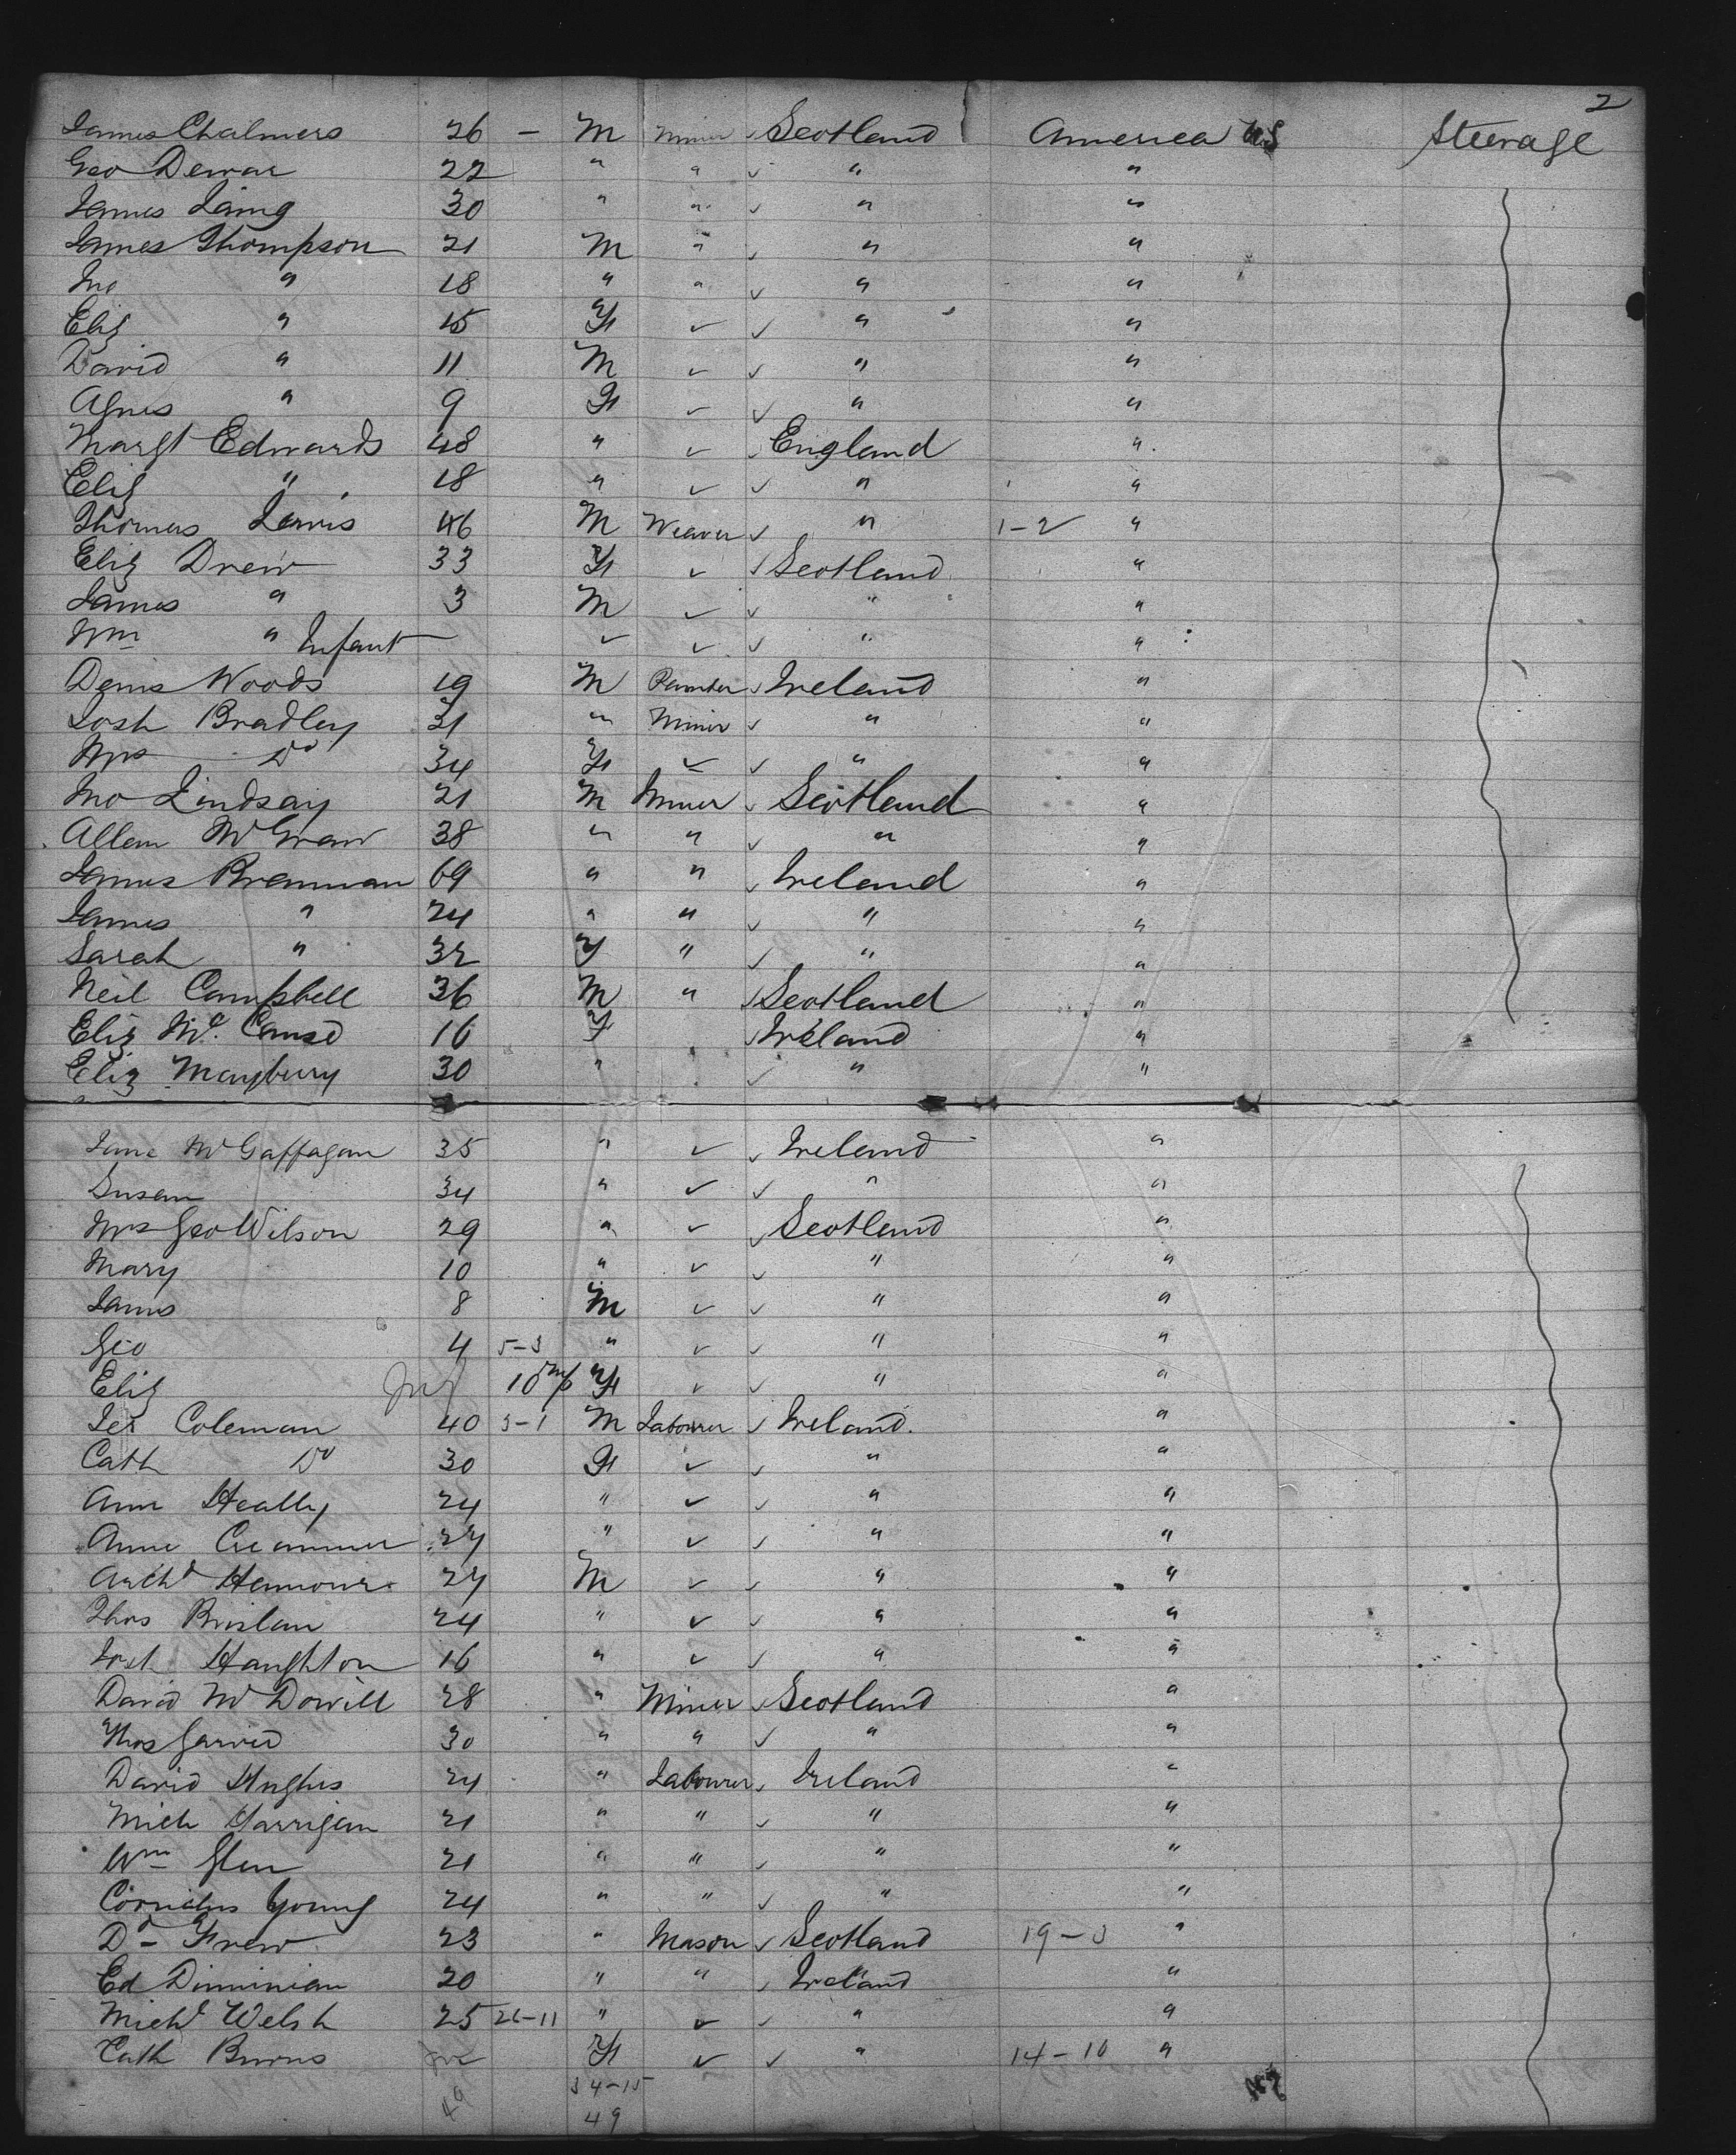 2
James Chalmers 26 — M Miner ✓ Scotland America US Steerage
Geo Dewar 22 " " ✓ " "
James Laing 30 " " ✓ " "
James Thompson 21 M " ✓ " "
Jno " 18 " " ✓ " "
Eliz " 15 F ✓ ✓ " "
David " 11 M ✓ ✓ " "
Agnes " 9 F ✓ ✓ " "
Margt Edwards 48 " ✓ ✓ England "
Eliz " 18 " ✓ ✓ " "
Thomas Lewis 46 M Weaver ✓ " 1-2 "
Eliz Drew 33 F ✓ ✓ Scotland "
James " 3 M ✓ ✓ " "
Wm " Infant ✓ ✓ ✓ " "
Denis Woods 19 M Painter ✓ Ireland "
Josh Bradley 31 " Miner ✓ " "
Mrs Do 34 F ✓ ✓ " "
Jno Lindsay 21 M Miner ✓ Scotland "
Allan McGraw 38 " " ✓ " "
James Brannan 69 " " ✓ Ireland "
James " 24 " " ✓ " "
Sarah " 32 F " ✓ " "
Neil Campbell 36 M " ✓ Scotland "
Eliz Mc 16 F ✓ Ireland "
Eliz Maybury 30 " ✓ " "
Jane McGaffagan 35 " ✓ ✓ Ireland "
Susan 34 " ✓ ✓ " "
Mrs Geo Wilson 29 " ✓ ✓ Scotland "
Mary 10 " ✓ ✓ " "
James 8 M ✓ ✓ " "
Geo 4 5-3 " ✓ ✓ " "
Eliz Inf 10 F ✓ ✓ " "
Jer Coleman 40 3-1 M Labourer ✓ Ireland "
Cath Do 30 F ✓ ✓ " "
Ann Heally 24 " ✓ ✓ " "
Anne Creammer 27 " ✓ ✓ " "
Archd 27 M ✓ ✓ " "
Thos Brislan 24 " ✓ ✓ " "
Josh Haughton 16 " ✓ ✓ " "
David McDowill 28 " Miner ✓ Scotland "
Thos 30 " " ✓ " "
David Hughes 24 " Labourer ✓ Ireland "
Mich Harrigan 21 " " ✓ " "
Wm Glen 21 " " ✓ " "
Cornelius Young 24 " " ✓ " "
Dd Frew 23 " Mason ✓ Scotland 19-3 "
Ed Dinninian 20 " " ✓ Ireland "
Michl Welsh 25 26-11 " ✓ ✓ " "
Cath Burns F ✓ ✓ " 14-10 "
34-15
49 49